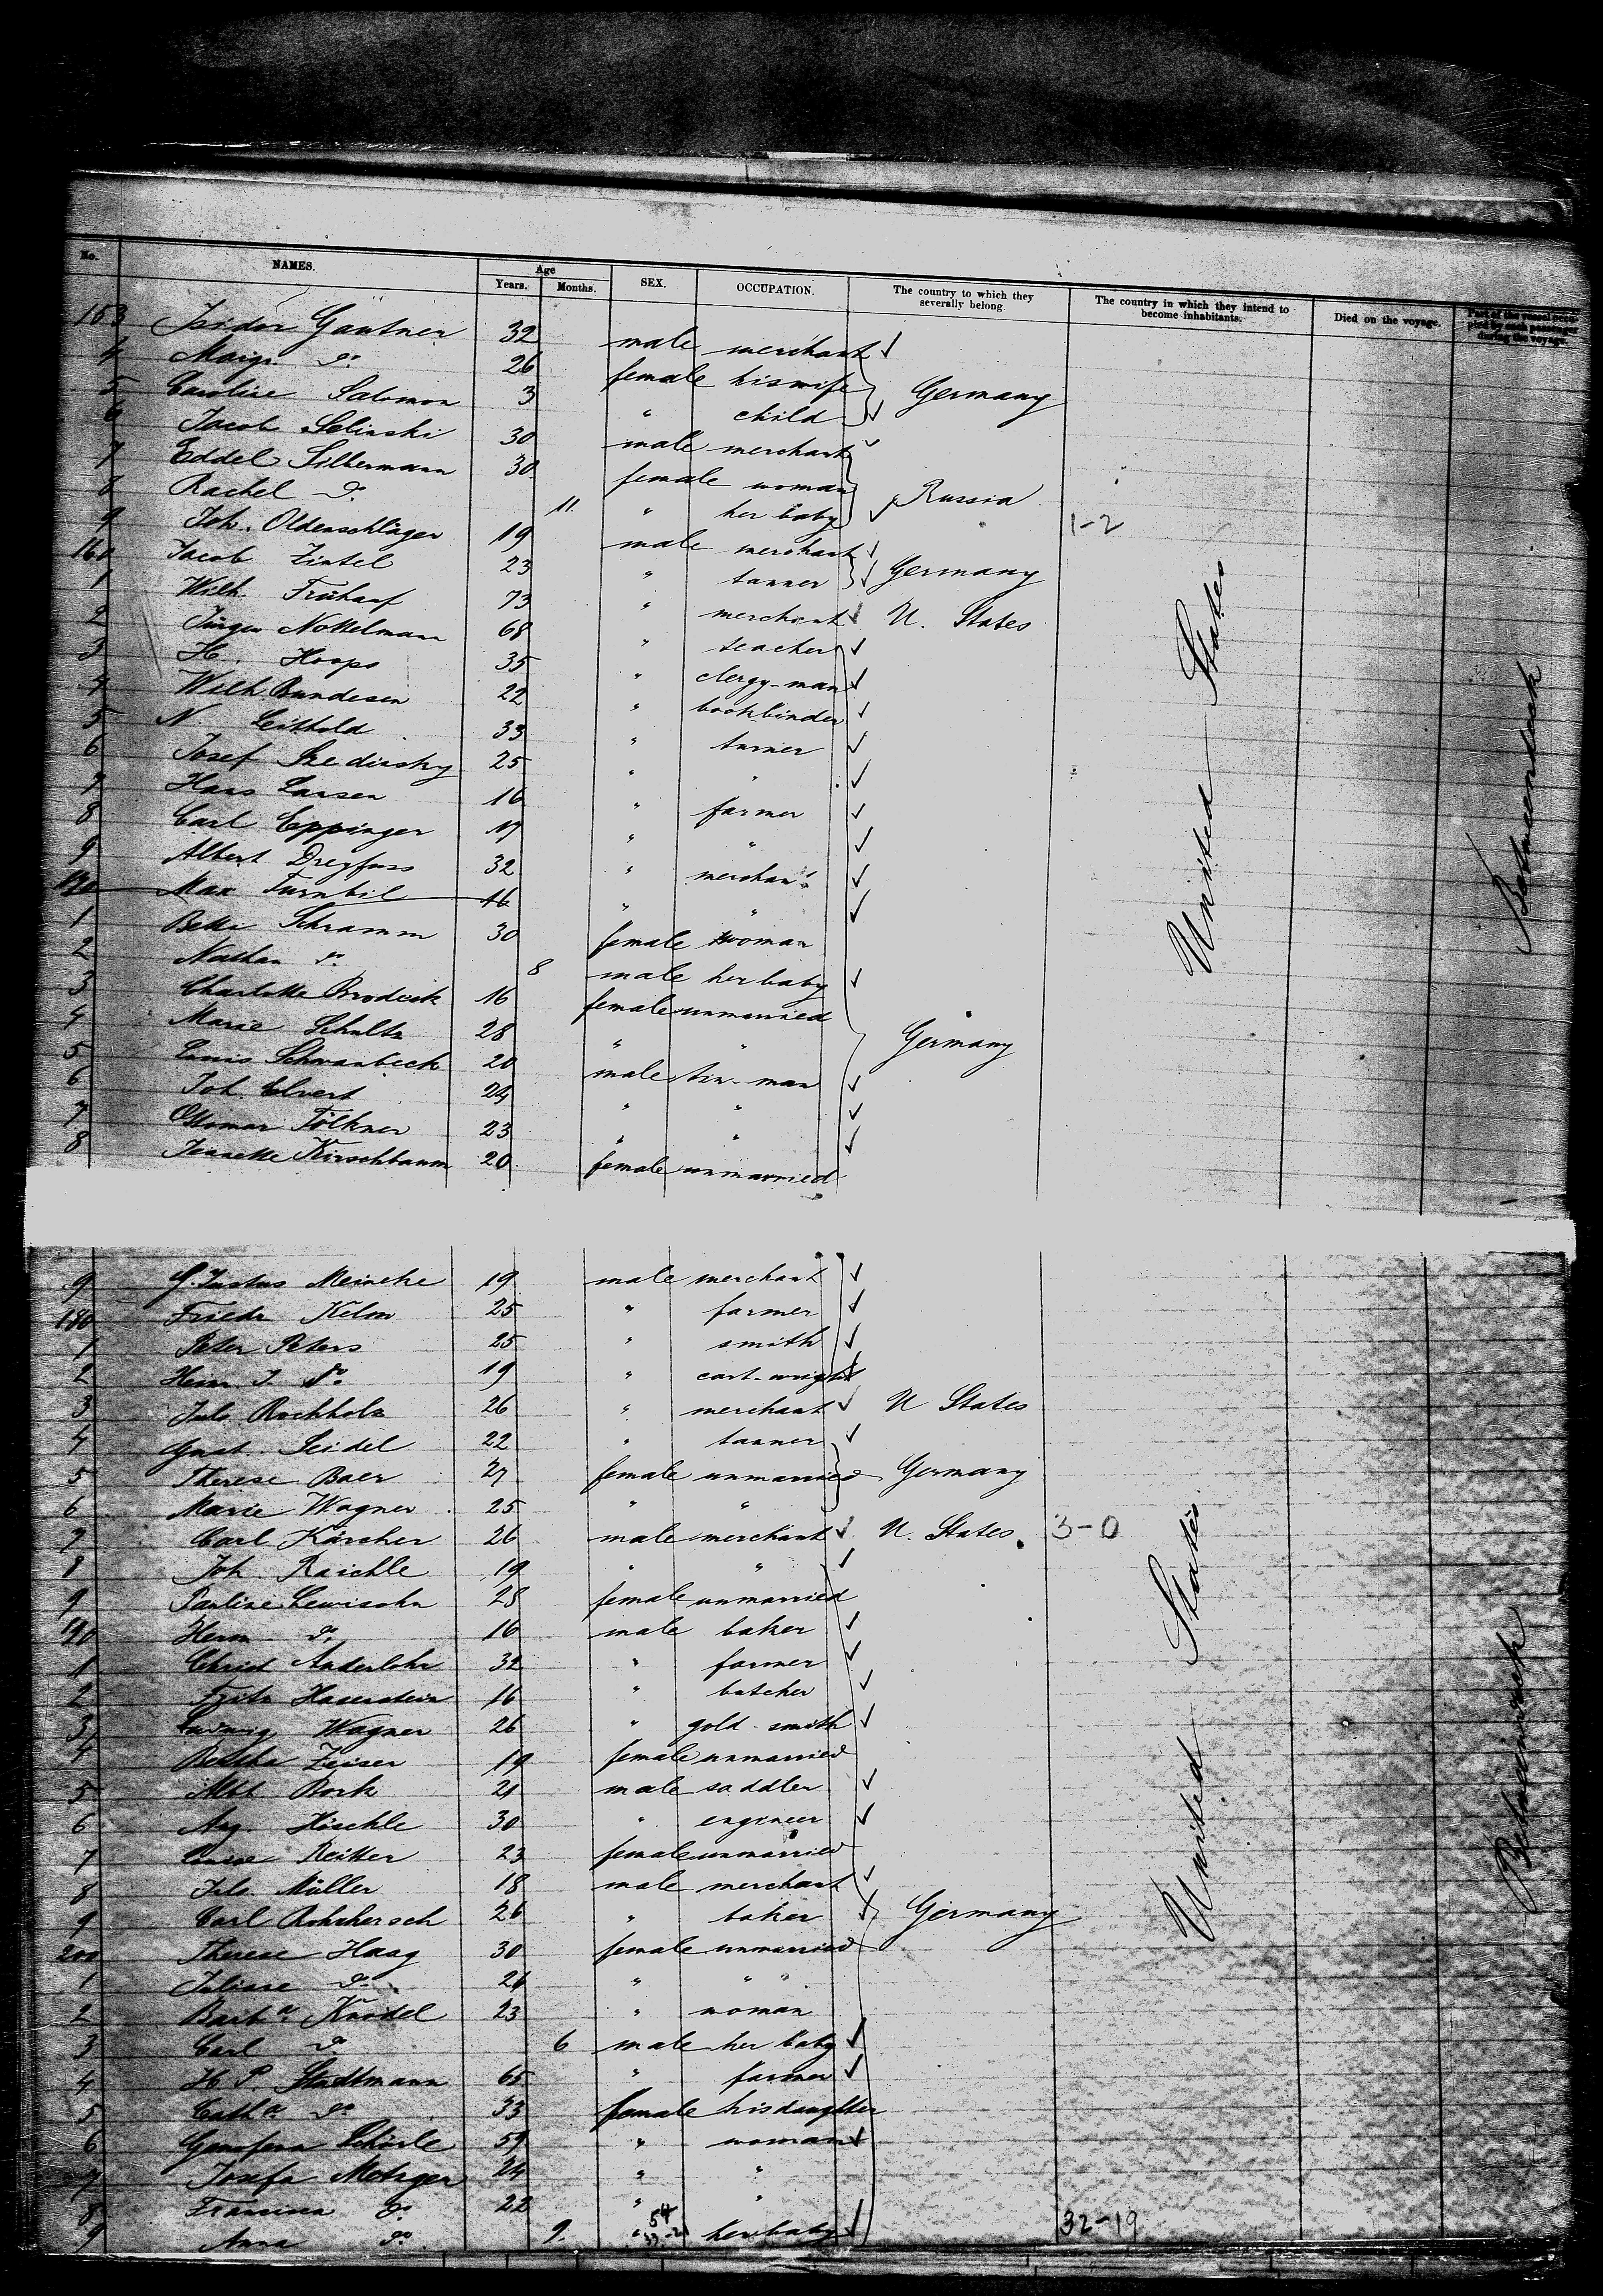 No. NAMES. Age Years. Months. SEX. OCCUPATION. The country to which they severally belong. The country in which they intend to become inhabitants. Died on the voyage. Part of the vessel occupied by each passenger during the voyage.
153 Isidor Gautner 32 male merchant
4 do. 26 female his wife Germany
5 Caroline Salomon 3 " child
6 Jacob Selinski 30 male merchant
7 Eddel Silbermann 30 female woman Russia
8 Rachel do. 11. " her baby
9 Joh. Oldenschläger 19 male merchant 1-2
160 Jacob Zintel 23 " tanner Germany
1 Wilh. Frühauf 73 " merchant U. States
2 Jürgen Nottelmann 68 " teacher
3 H. Hoops 35 " clergy-man
4 Wilh. Bundesen 22 " bookbinder
5 N. Leithold 33 " turner
6 Josef 25 " "
7 Hans Larsen 16 " farmer
8 Carl Eppinger 17 " "
9 Albert Dreyfuss 32 " merchant
170 Max Turnbil 16 " "
1 Betti Schramm 30 female woman
2 Nathan do. 8 male her baby
3 Charlotte 16 female unmarried
4 Marie Schultz 28 " " Germany
5 Louis Schwanbeck 20 male tin-man
6 Joh. Elvert 24 " "
7 Ottomar Fölkner 23 " "
8 Jeanette Kirschbaum 20 female unmarried
United States
Betweendeck
9 G. Justus Meineke 19 male merchant
180 Friedr. Kelm 25 " farmer
1 Peter Peters 25 " smith
2 Heinr. J. do. 19 " cart-wright
3 Juls. Rochholz 26 " merchant U States
4 Gust. Seidel 22 " tanner
5 Therese Baer 27 female unmarried Germany
6 Marie Wagner 25 " "
7 Carl Kärcher 26 male merchant U. States. 3-0
8 Joh Raichle 19 " "
9 Pauline Lewisohn 28 female unmarried
190 Herm do. 16 male baker
1 Christ Anderlohr 32 " farmer
2 Fritz Hasenstein 16 " butcher
3 Ludwig Wagner 26 " gold-smith
4 Bertha Zeiser 19 female unmarried
5 Albt Bork 21 male saddler
6 Aug. Höschle 30 " engineer
7 Louise Reitter 23 female unmarried
8 Juls. Müller 18 male merchant
9 Carl Rohrhersch 26 " baker Germany
200 Therese Haag 30 female unmarried
1 do. 26 " " "
2 Barba. Knödel 23 " woman
3 Carl do. 6 male her baby
4 H. P. Stadtmann 65 " farmer
5 Catha. do. 33 female his daughter
6 Schüle 59 " woman
7 Josefa Metzger 24 " "
8 Francisca do. 22 " "
9 Anna do. 9. " 54 her baby 32-19
United States
Betweendeck